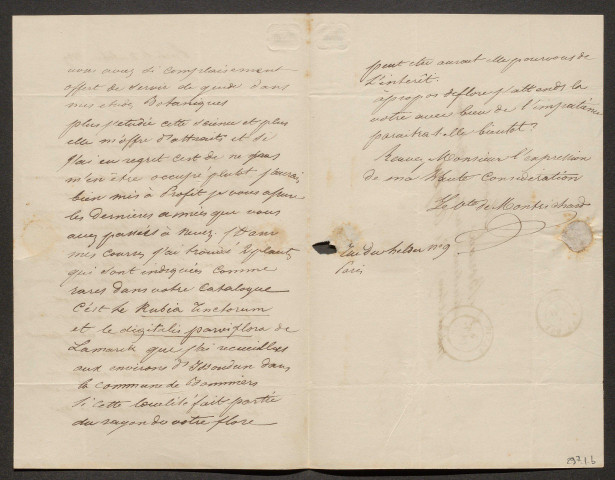 vous avez si complaisement
offert de servir de guide dans
mes etudes Botaniques
plus j'etudie cette science et plus
elle m'offre d'attraits et si
j'ai un regret c'est de ne pas
m'en être occupé plutot j'aurais
bien mis à Profit je vous assure
les Dernieres années que vous
avez passées à Dans
mes courses j'ai trouvé 2 plantes
qui sont indiquées comme
rares dans votre Catalogue
C'est le Rubia Tinctorum
et le digitalis parviflora de
Lamarck que j'ai recueillies
aux environs d'Issoudun dans
la commune de Pommiers
si cette localité fait partie
du rayon de votre flore
peut etre aurait elle pour vous de
L'interêt.
à propos de flore j'attends la
votre avec bien de l'impatience
paraitra t elle bientot?
Recevez Monsieur l'expression
de ma Haute Consideration
Le Vte de Montrichard
Rue du helder no 9
Paris
297 1 b